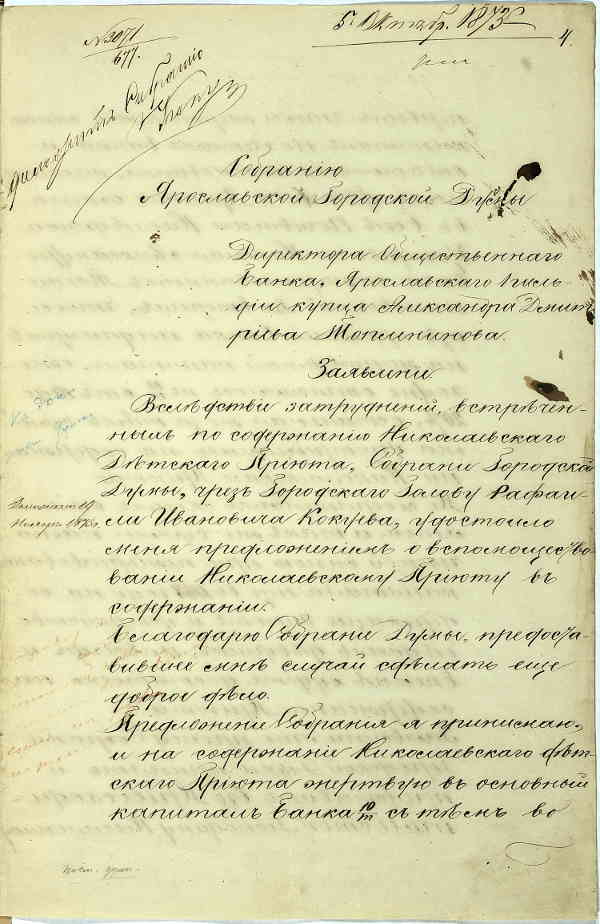 № 3071
677.
5 Октяб. 1873
4.
Собранію
Собранію
Ярославской Городской Думы
Директора Общественнаго
Банка, Ярославскаго 1 гиль-
діи купца Александра Дмит-
ріева Топленинова.
Заявленіе.
Вслѣдствіе затрудненій, встрѣчен-
ныхъ по содержанію Николаевскаго
Дѣтскаго Пріюта, Собраніе Городской
Думы, чрезъ Городскаго Голову Рафаи-
ла Ивановича Кокуева, удостоило
меня предложеніемъ о вспомощество-
ваніи Николаевскому Пріюту въ
содержаніи.
Благодарю Собраніе Думы, предоста-
вившее мнѣ случай сдѣлать еще
доброе дѣло.
Предложеніе Собранія я принимаю,
и на содержаніе Николаевскаго дѣт-
скаго Пріюта жертвую въ основный
капиталъ Банка 10/т съ тѣмъ во